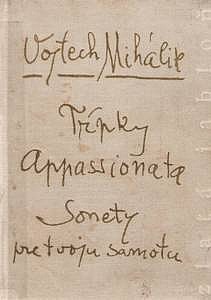 Vojtech Mihálik
Tŕpky
Appassionata
Sonety
pre tvoju samotu
zlatá jabloň